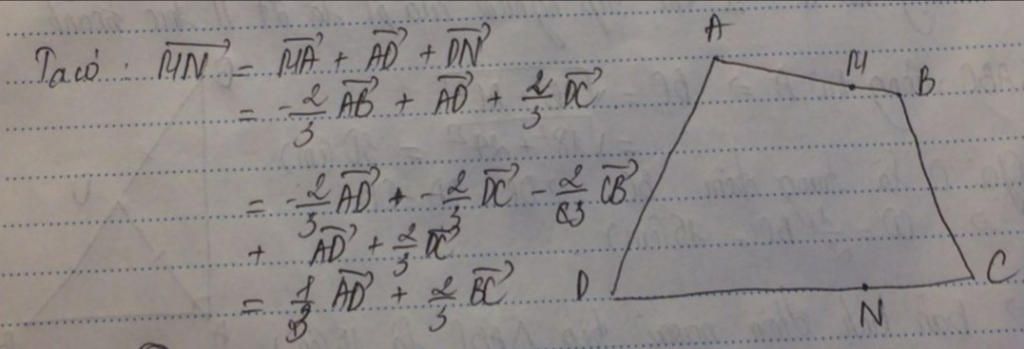 Ta có : \overrightarrow{MN} = \overrightarrow{MA} + \overrightarrow{AD} + \overrightarrow{DN}
= -\frac{2}{3} \overrightarrow{AB} + \overrightarrow{AD} + \frac{2}{3} \overrightarrow{DC}
= -\frac{2}{3} \overrightarrow{AD} + -\frac{2}{3} \overrightarrow{DC} - \frac{2}{3} \overrightarrow{CB}
+ \overrightarrow{AD} + \frac{2}{3} \overrightarrow{DC}
= \frac{1}{3} \overrightarrow{AD} + \frac{2}{3} \overrightarrow{BC}
A
M
B
D
C
N